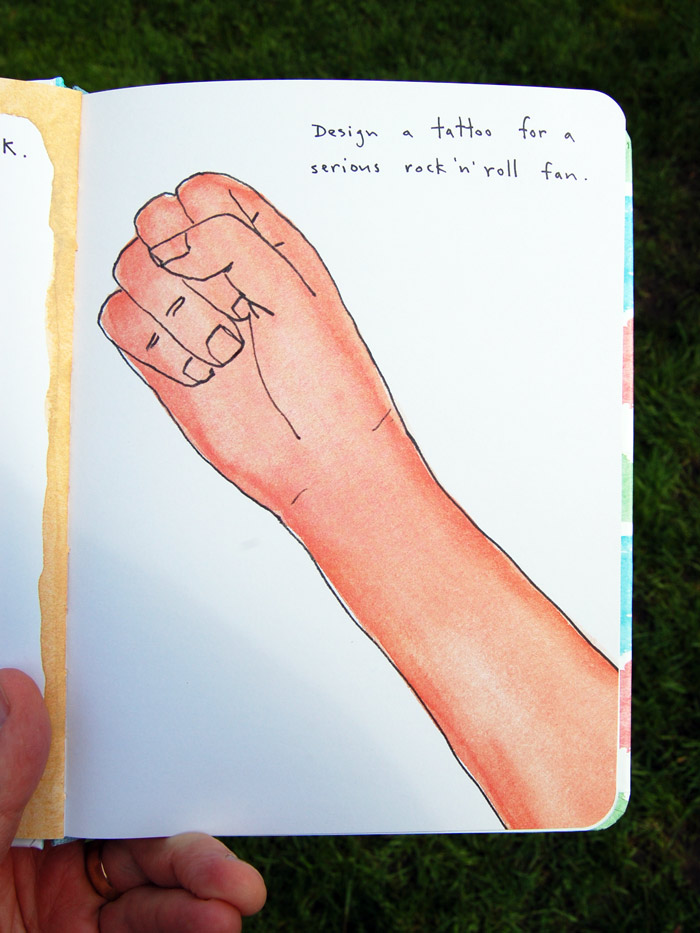 K.
Design a tattoo for a
serious rock 'n' roll fan.